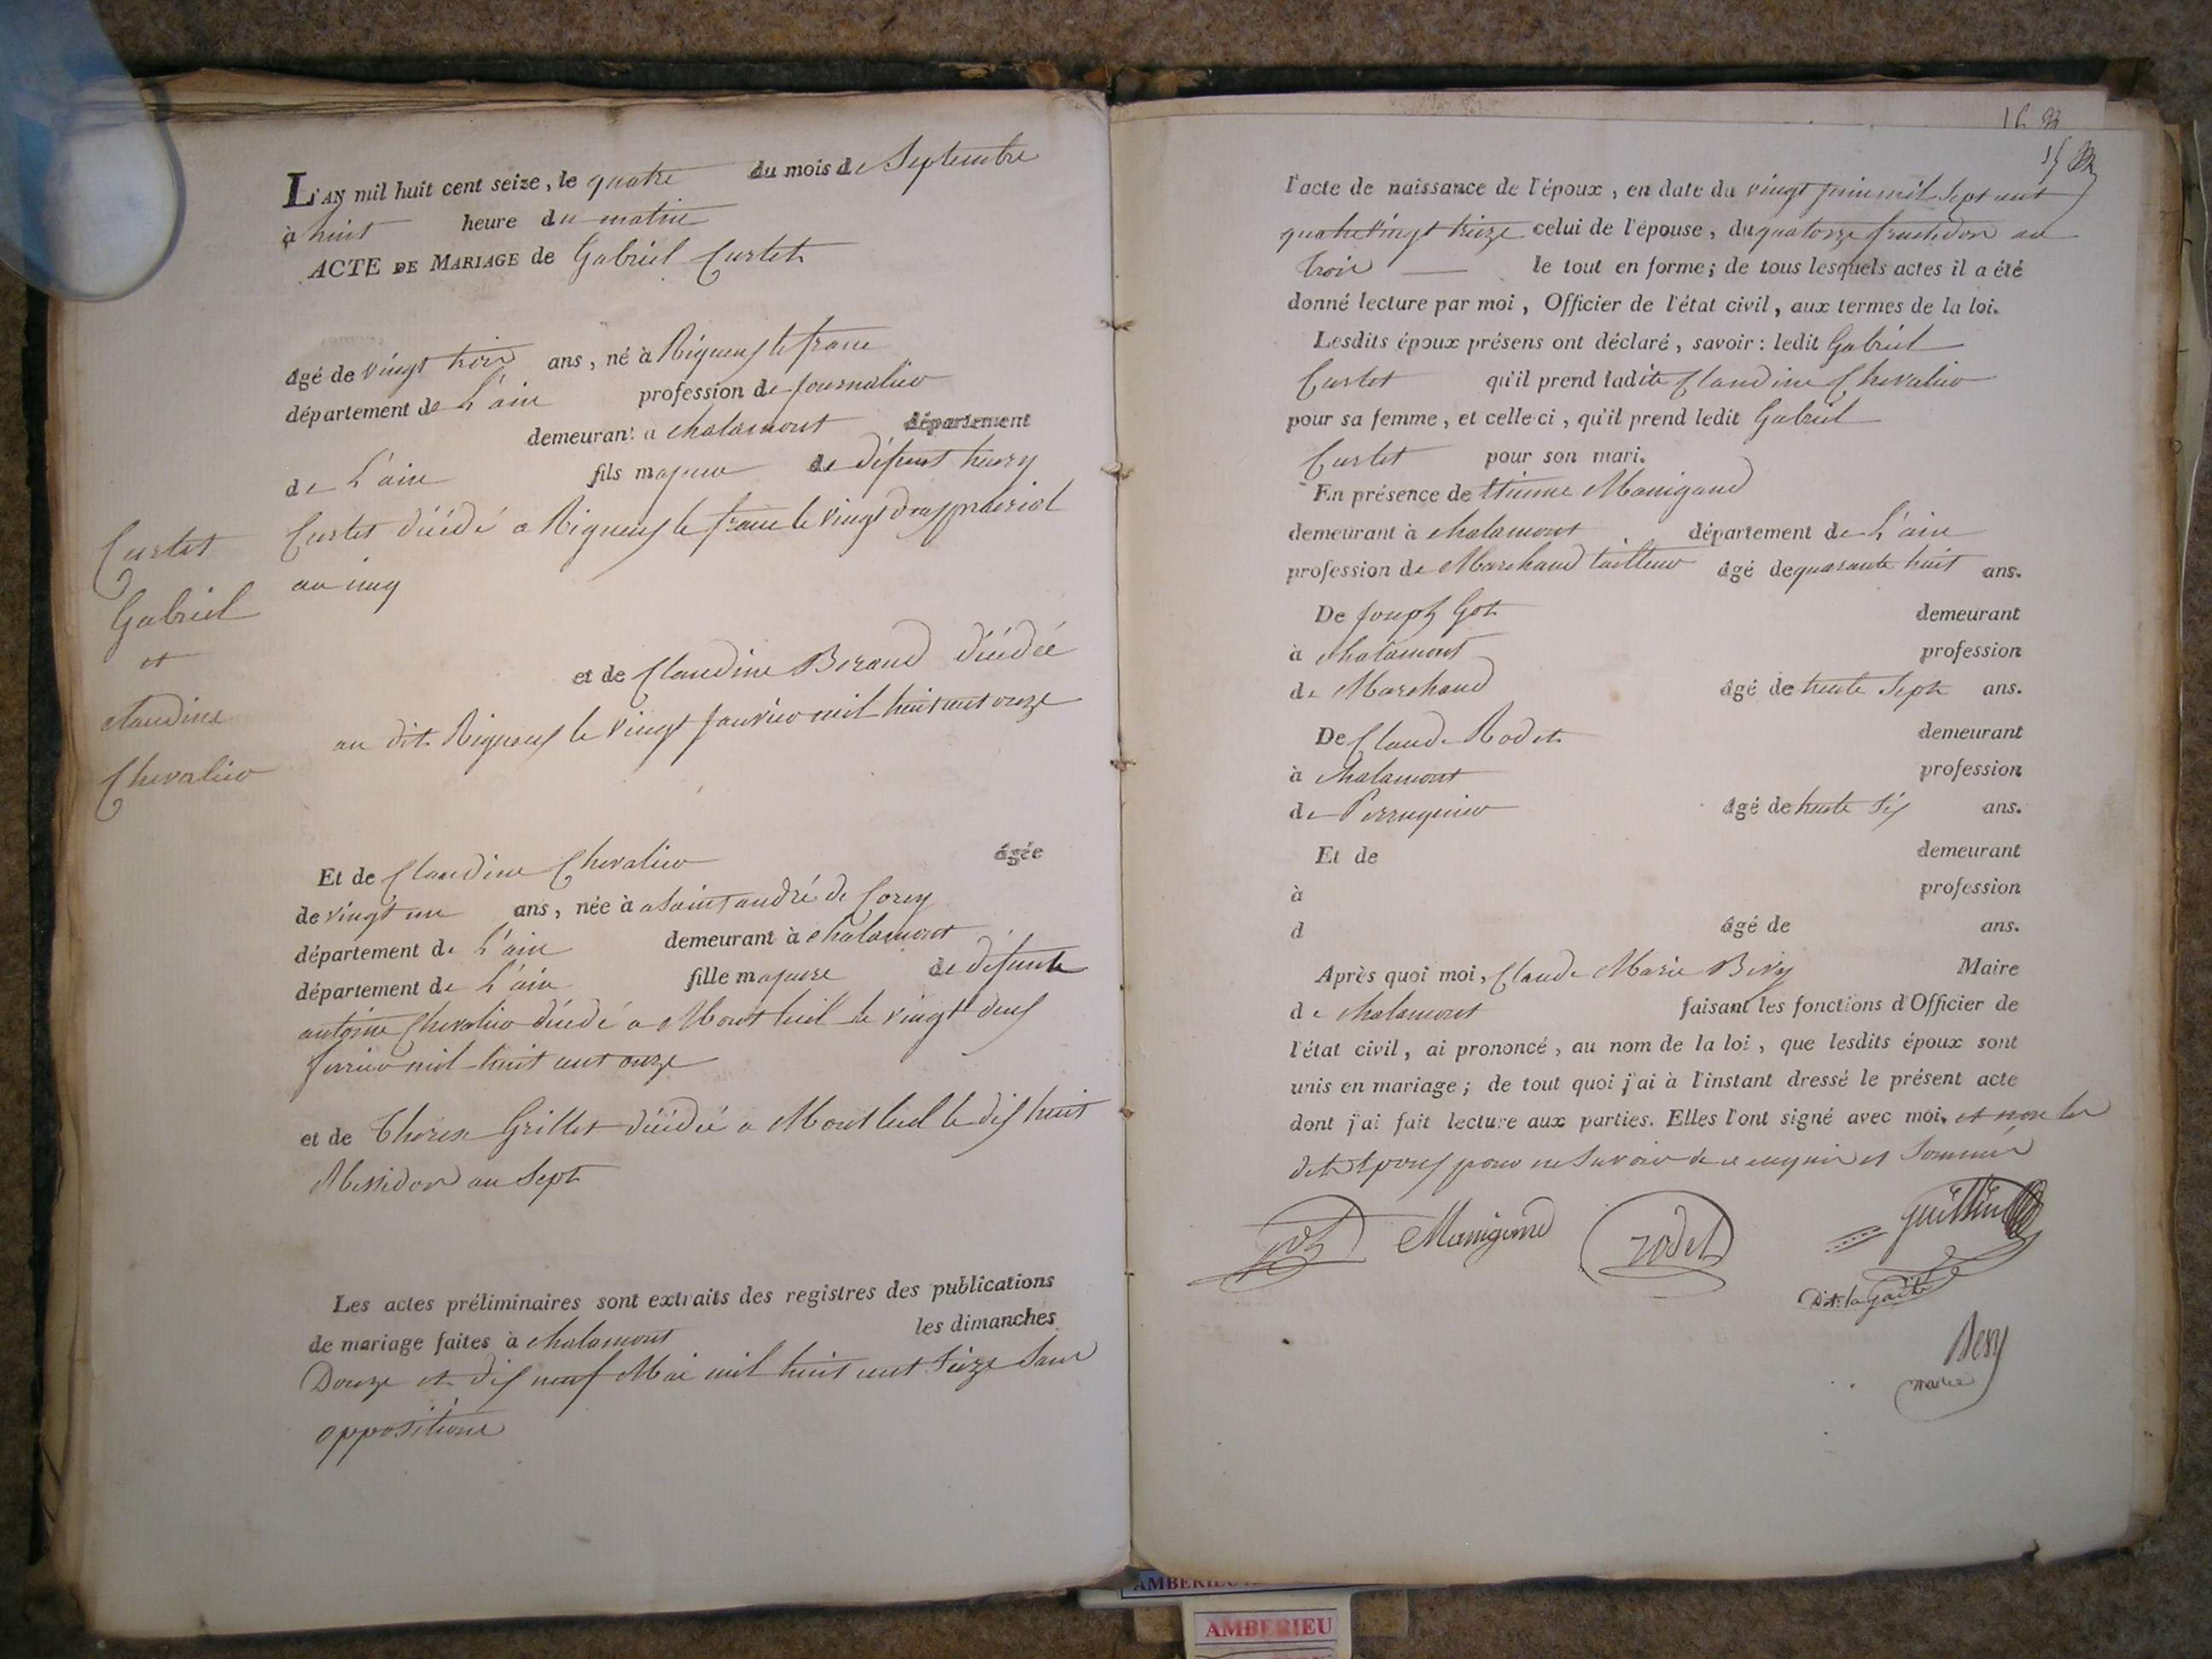 L'AN mil huit cent seize, le quatre du mois de Septembre
à huit heure du matin
ACTE DE MARIAGE de Gabriel Curtet
âgé de vingt trois ans, né à Rigneux le franc
département de L'ain profession de journalier
demeurant a chalamont département
de L'ain fils majeur de défunt henry
Curtet décédé a Rigneux le franc le vingt deux prairial
an cinq
Curtet
Gabriel
et
claudine
Chevalier
et de Claudine Beraud décédée
au dit Rigneux le vingt janvier mil huit cent onze
Et de Claudine Chevalier âgée
de vingt un ans, née à a saint andré de Corcy
département de L'ain demeurant à chalamont
département de L'ain fille majeure de défunte
antoine Chevalier décédé a Montluel le vingt deux
janvier mil huit cent onze
et de Therese Grillet décédée a Montluel le dix huit
Messidor an Sept
Les actes préliminaires sont extraits des registres des publications
de mariage faites à chalamont les dimanches
Douze et dix neuf Mai mil huit cent Seize Sans
opposition
15
l'acte de naissance de l'époux, en date du vingt juin mil Sept cent
quatre vingt treize celui de l'épouse, du quatorze fructidor an
trois le tout en forme; de tous lesquels actes il a été
donné lecture par moi, Officier de l'état civil, aux termes de la loi.
Lesdits époux présens ont déclaré, savoir: ledit Gabriel
Curtet qu'il prend ladite Claudine Chevalier
pour sa femme, et celle-ci, qu'il prend ledit Gabriel
Curtet pour son mari.
En présence de Etienne Manigand
demeurant à chalamont département de L'ain
profession de Marchand tailleur âgé de quarante huit ans.
De Joseph Got demeurant
à chalamont profession
de Marchand âgé de trente Sept ans.
De Claude Rodet demeurant
à chalamont profession
de Perruquier âgé de trente Six ans.
Et de demeurant
à profession
d âgé de ans.
Après quoi moi, Claude Marie Maire
de chalamont faisant les fonctions d'Officier de
l'état civil, ai prononcé, au nom de la loi, que lesdits époux sont
unis en mariage; de tout quoi j'ai à l'instant dressé le présent acte
dont j'ai fait lecture aux parties. Elles l'ont signé avec moi. et non les
dits Epoux pour ne Savoir de ce enquis et Sommés
Got Manigand rodet
Dit la Gaité
maire
AMBERIEU